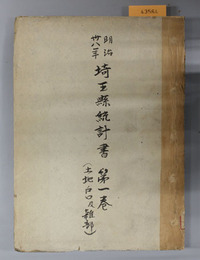 明治
卅八年
埼玉縣統計書 第一巻
(土地戸口及雜部)